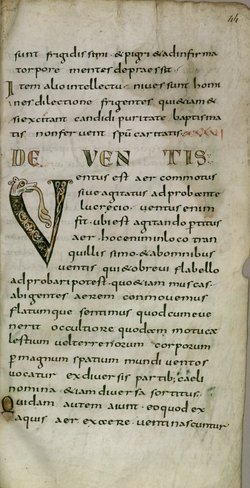 44
sunt frigidissimi. & pigri & ad infirma
torpore mentes depraessi.
Item alio intellectu. nives sunt homi
nes dilectione frigentes. qui etiam &
si existant candidi puritate baptisma
tis non fervent spu caritatis.
DE VENTIS
Ventus est aer commotus
sive agitatus ad probante
lucrecio. ventus enim
fit ubi est agitando
aer. hoc enim in loco tran
quillissimo. & ab omnibus
ventis qui & brevi flabello
adprobari potest. quo &iam muscas
abigentes aerem commovemus
flatumque sentimus quod cum eve
nerit occultiore quodam motu cae
lestium vel terrenorum corporum
per magnum spatium mundi ventos
vocatur ex diversis partib; caeli
nomina &iam diversa sortitus.
Quidam autem aiunt. eo quod ex
aquis aer venti nascuntur